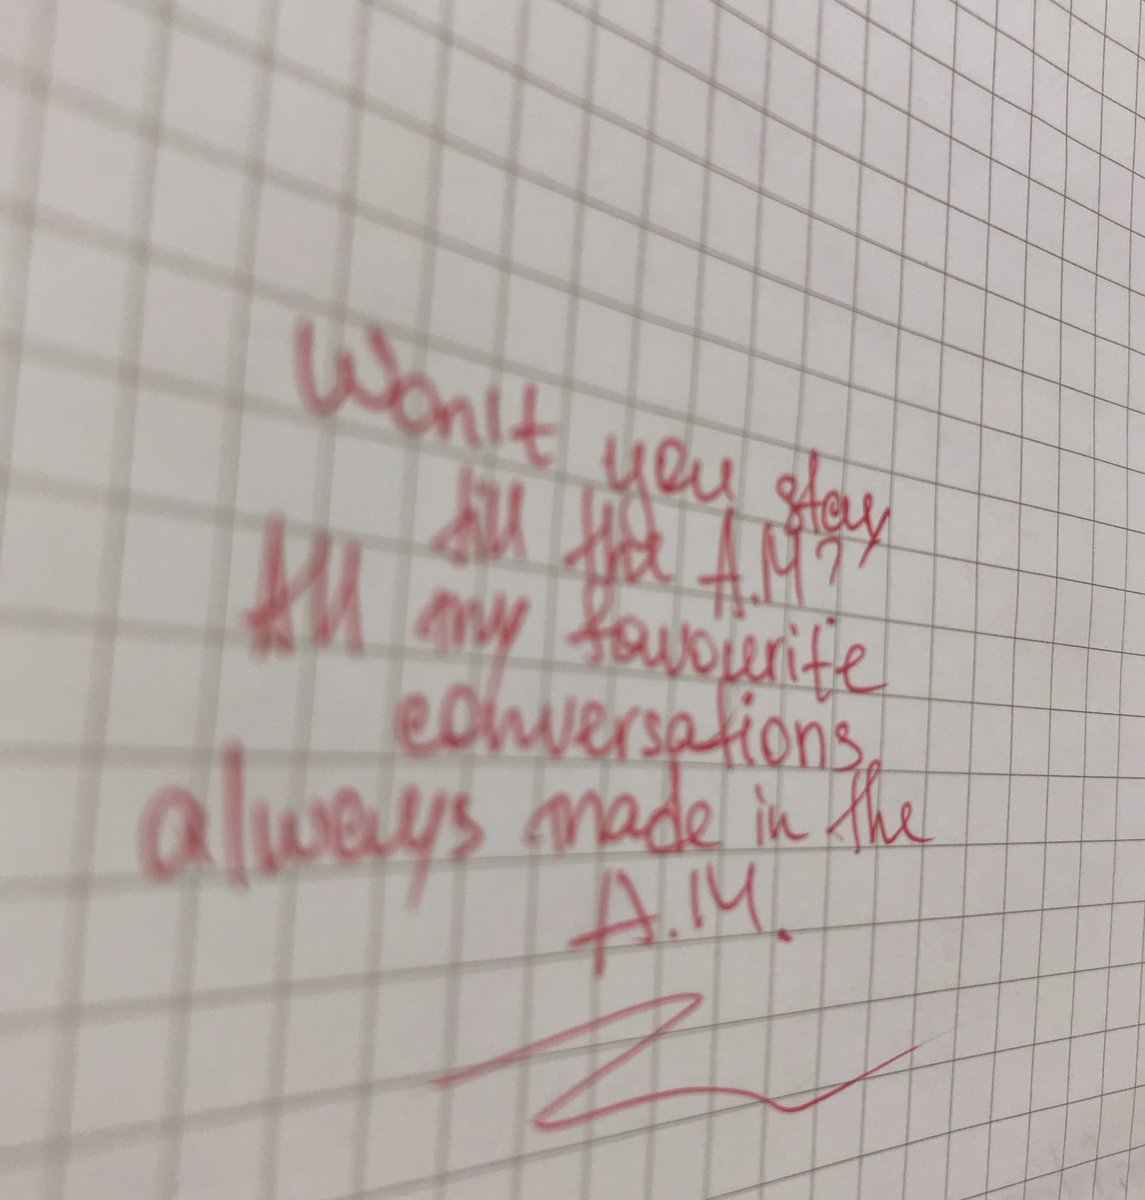 Won't you stay
till the A.M?
All my favourite
conversations
always made in the
A.M.